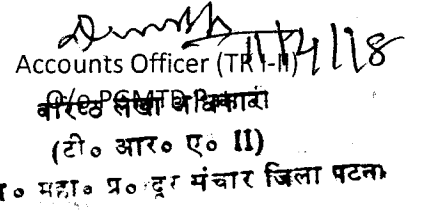 11/4/18
Accounts Officer (TR I-II)
O/o PGMTD
वरिष्ठ लेखा अधिकारी
(टी० आर० ए० II)
महा० प्र० दूर संचार जिला पटना